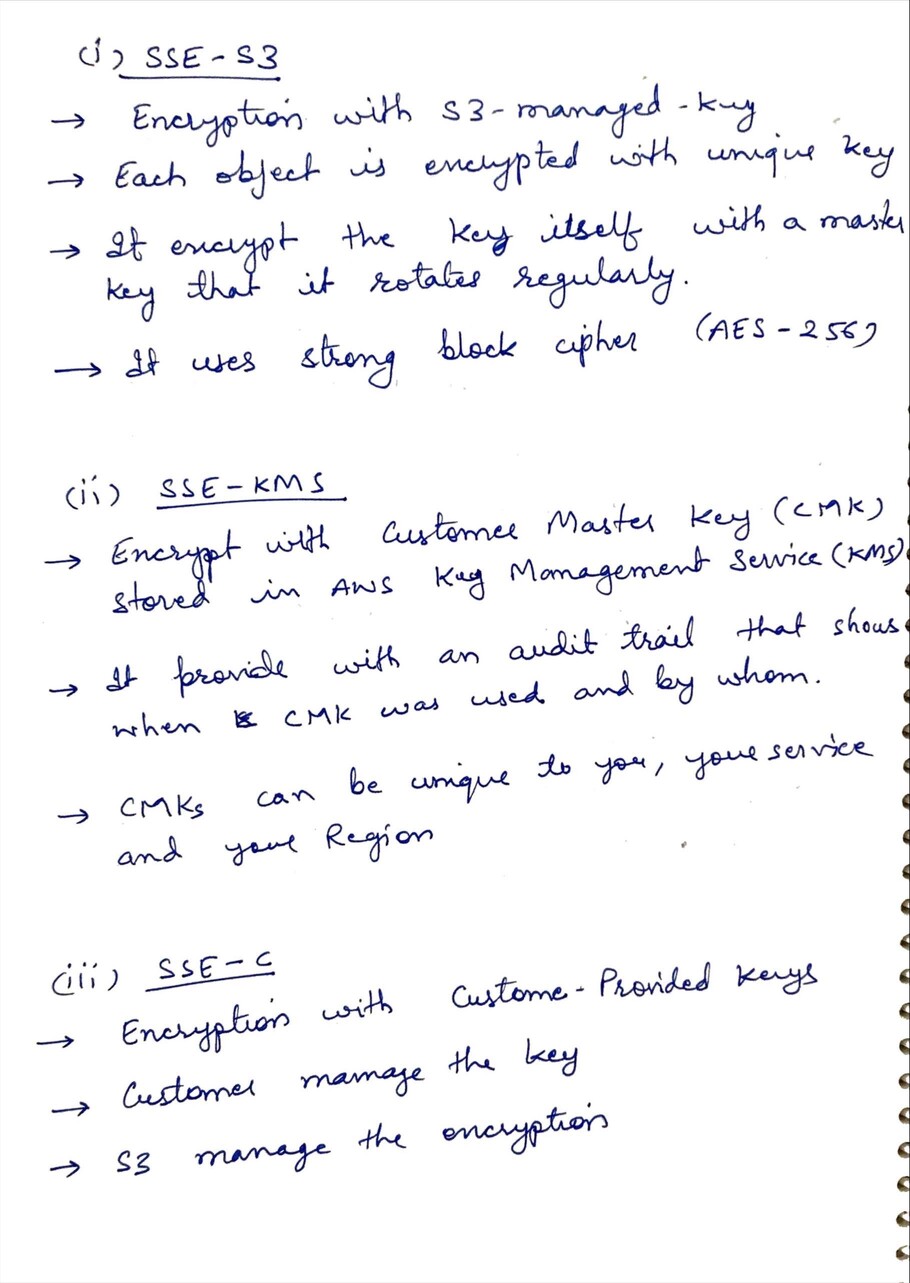 (i) SSE-S3
→ Encryption with S3-managed-key
→ Each object is encrypted with unique key
→ It encrypt the key itself with a master
key that it rotates regularly.
→ It uses strong block cipher (AES-256)
(ii) SSE-KMS
→ Encrypt with Customer Master Key (CMK)
stored in AWS Key Management Service (KMS)
→ It provide with an audit trail that shows
when CMK was used and by whom.
→ CMKs can be unique to you, your service
and your Region
(iii) SSE-C
→ Encryption with Custome-Provided keys
→ Customer manage the key
→ S3 manage the encryption